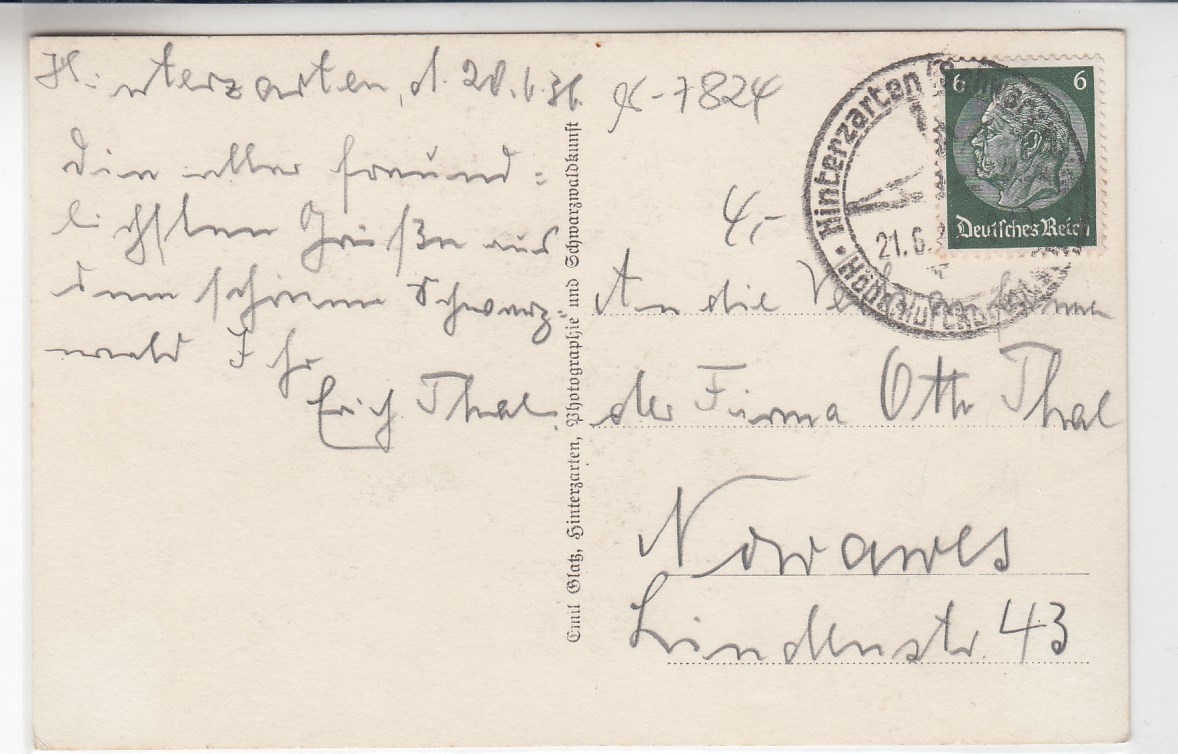 Hinterzarten, d. 20.6.36.
Die aller freund=
lichsten Grüße aus
dem schönen Schwarz=
wald Ihr
Erich Thal.
Emil Glatz, Hinterzarten, Photographie und Schwarzwaldkunst
K-7824
4,-
Hinterzarten (Schwarzw
21.6.3
Höhenluftkurort
6 6
Deutsches Reich
An die
der Firma Otto Thal
Nowawes
Lindenstr. 43